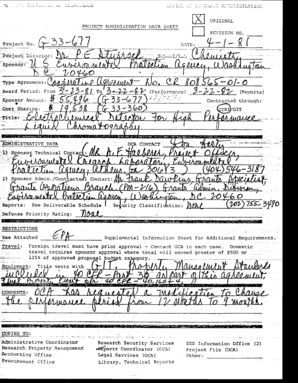 OFFICE OF CONTRACT ADMINISTRATION
PROJECT ADMINISTRATION DATA SHEET
X ORIGINAL
REVISION NO.
Project No. G-33-677 DATE: 4-1-81
Project Director: Mr P E Sturrock Chemistry
Sponsor: U S Environmental Protection Agency, Washington
DC 20460
Type Agreement: Cooperative Agreement No. CR 808565-01-0
Award Period: From 3-23-81 To 3-22-82 (Performance) 3-22-82 (Reports)
Sponsor Amount: $ 55,496 (G-33-677) Contracted through:
Cost Sharing: $ 19,538 (G-33-360)
Title: Electrochemical Detector for High Performance
Liquid Chromatography
ADMINISTRATIVE DATA OCA CONTACT Don Hasty
1) Sponsor Technical Contact: Project Officer,
Environmental Research Laboratory, Environmental
Protection Agency, Athens, Ga 30613 (404) 546-3187
2) Sponsor Admin./Contractual Contact: Mr Frank Dawkins, Grants Specialist,
Grants Operations Branch (PM-216) Grants Admin. Division,
Environmental Protection Agency, Washington, DC 20460
Reports: See Deliverable Schedule Security Classification: None (202) 755-
Defense Priority Rating: None
RESTRICTIONS
See Attached EPA Supplemental Information Sheet for Additional Requirements.
Travel: Foreign travel must have prior approval - Contact OCA in each case. Domestic
travel requires sponsor approval where total will exceed greater of $500 or
125% of approved proposal budget category.
Equipment: Title vests with GIT. Property Management Standards
included in 40 CFR Part 30 as part of this agreement
COMMENTS: OCA has requested a modification to change
the performance period from 12 months to 9 months.
COPIES TO:
Administrative Coordinator
Research Property Management
Accounting Office
Procurement Office
Research Security Services
Reports Coordinator (OCA)
Legal Services (OCA)
Library, Technical Reports
EES Information Office (2)
Project File (OCA)
Other: